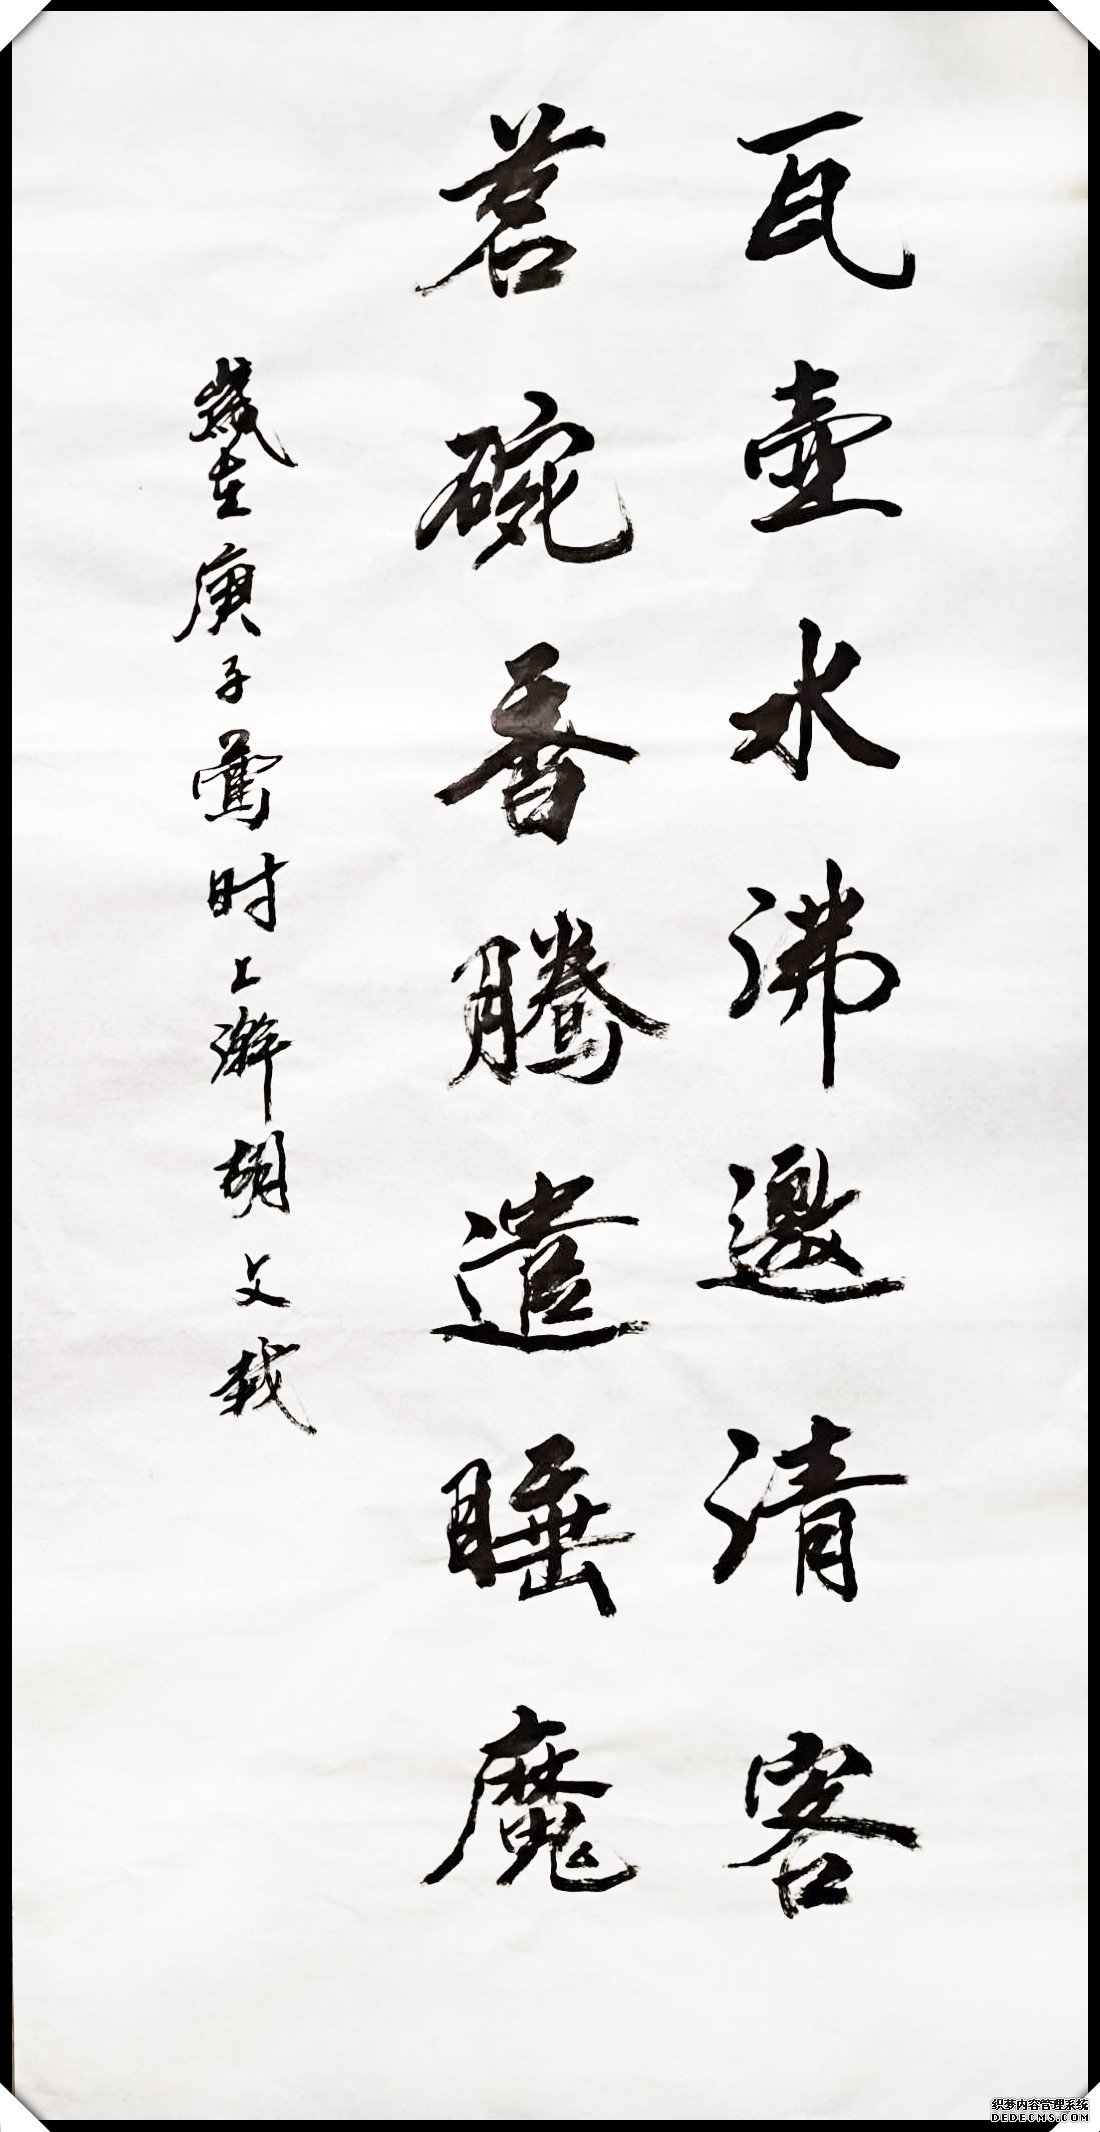 瓦壶水沸邀清客
茗碗香腾遣睡魔
歲在庚子莺时上澣胡文载
织梦内容管理系统
DEDECMS.COM